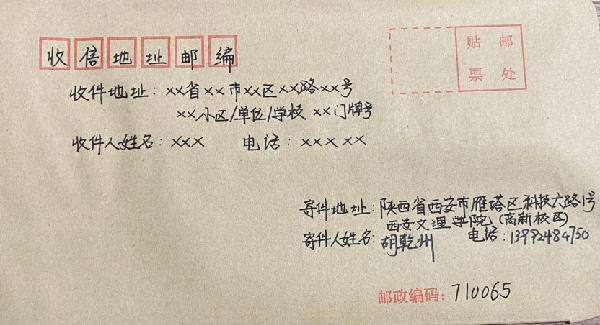 收信地址邮编
贴 邮
票 处
收件地址：××省××市××区××路××号
××小区/单位/学校 ××门牌号
收件人姓名：××× 电话：×××××
寄件地址：陕西省西安市雁塔区科技六路1号
西安文理学院（高新校区）
寄件人姓名：胡乾州 电话：13992484750
邮政编码：710065